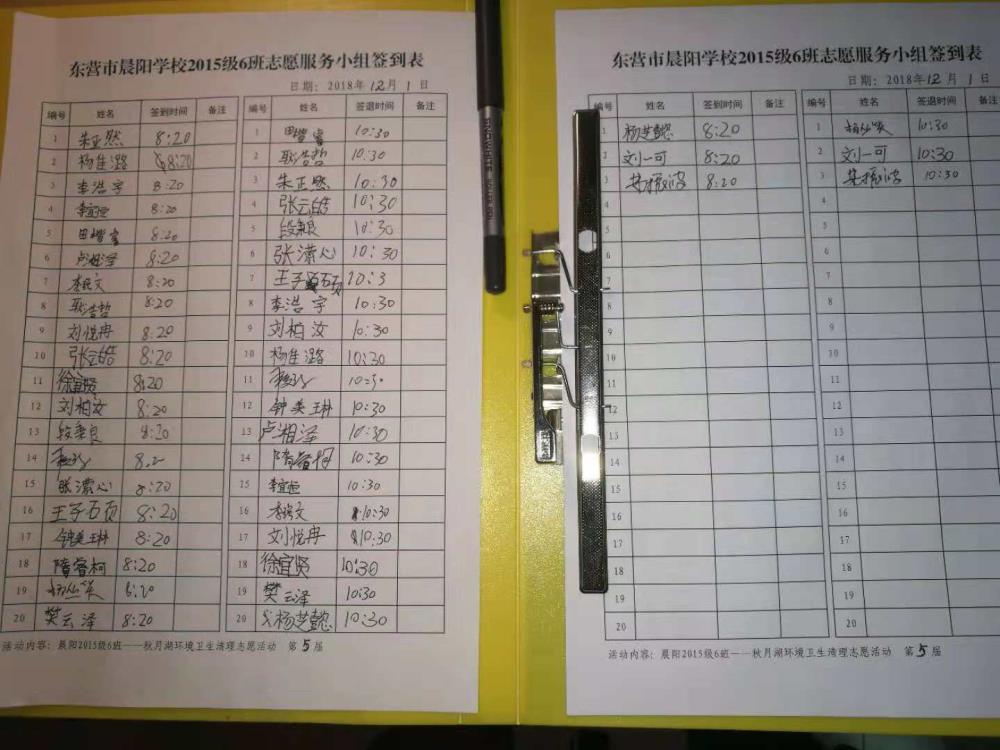 东营市晨阳学校2015级6班志愿服务小组签到表
日期：2018年12月1日
编号 姓名 签到时间 备注 编号 姓名 签退时间 备注
1 朱正然 8:20 1 田 10:30
2 杨佳潞 8:20 2 耿浩哲 10:30
3 李浩宇 8:20 3 朱正然 10:30
4 李宜恒 8:20 4 张云皓 10:30
5 田 8:20 5 段 10:30
6 卢湘泽 8:20 6 张潆心 10:30
7 李 文 8:20 7 王子硕 10:3
8 耿浩哲 8:20 8 李浩宇 10:30
9 刘悦冉 8:20 9 刘柏汶 10:30
10 张云皓 8:20 10 杨佳潞 10:30
11 徐宜贤 8:20 11 10:30
12 刘柏汶 8:20 12 钟美琳 10:30
13 段 良 8:20 13 卢湘泽 10:30
14 8:2 14 隋睿柯 10:30
15 张潆心 8:20 15 李宜恒 10:30
16 王子硕 8:20 16 李 文 10:30
17 钟美琳 8:20 17 刘悦冉 10:30
18 隋睿柯 8:20 18 徐宜贤 10:30
19 杨 笑 8:20 19 樊云泽 10:30
20 樊云泽 8:20 20 杨芝懿 10:30
活动内容：晨阳2015级6班——秋月湖环境卫生清理志愿活动 第5届
东营市晨阳学校2015级6班志愿服务小组签到表
日期：2018年12月1日
编号 姓名 签到时间 备注 编号 姓名 签退时间 备注
1 杨芝懿 8:20 1 杨 笑 10:30
2 刘一可 8:20 2 刘一可 10:30
3 8:20 3 10:30
4 4
5 5
6 6
7 7
8 8
9 9
10 10
11 11
12 12
13 13
14 14
15 15
16 16
17 17
18 18
19 19
20 20
活动内容：晨阳2015级6班——秋月湖环境卫生清理志愿活动 第5届